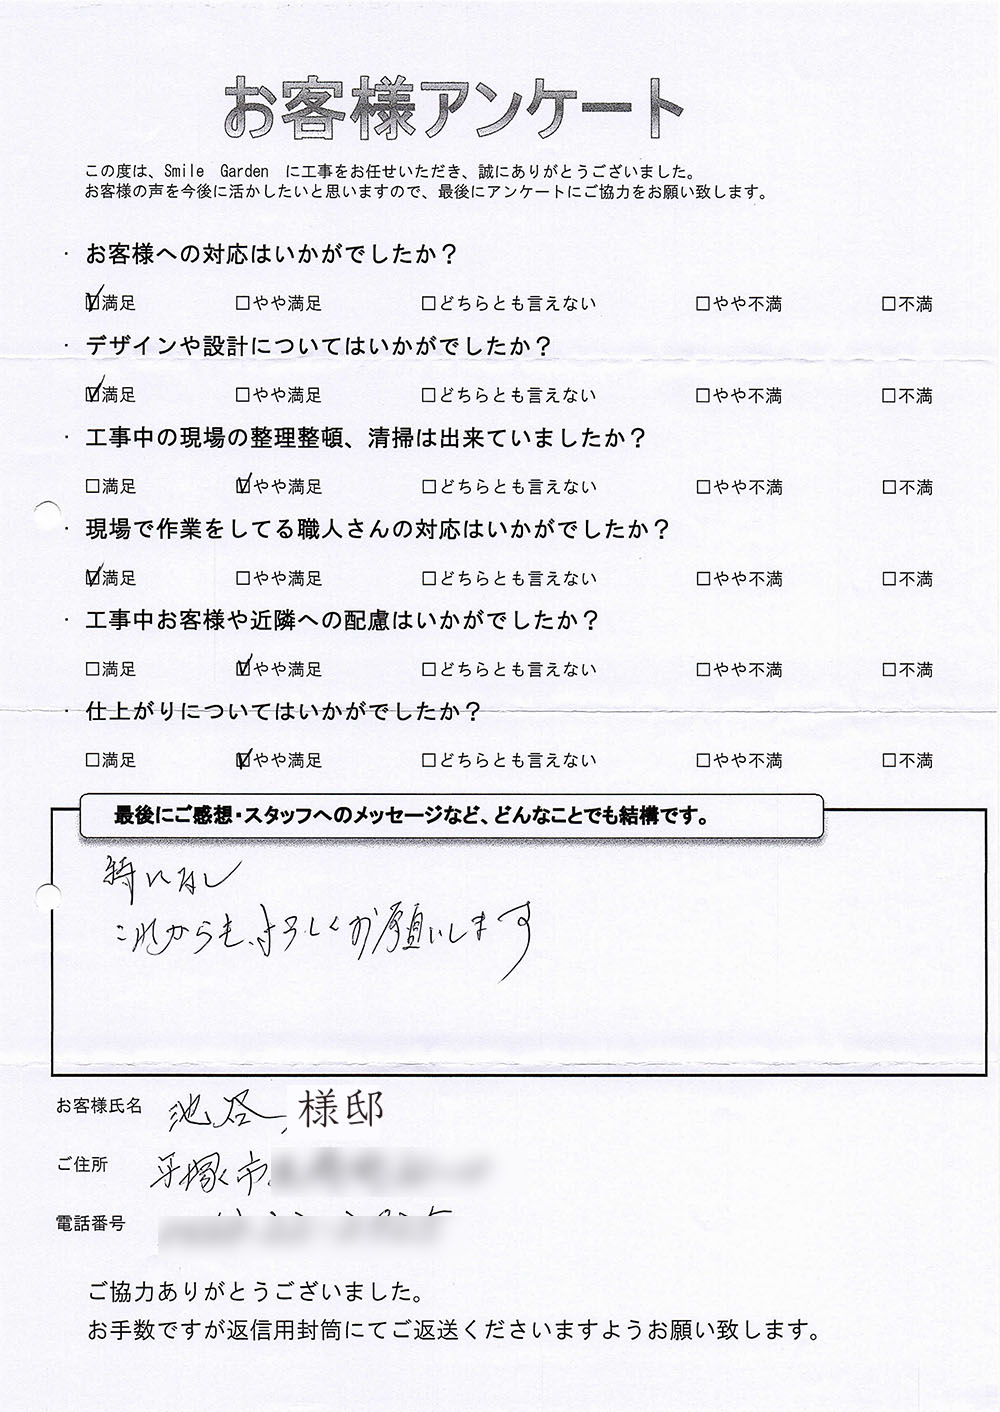 お客様アンケート
この度は、Smile Garden に工事をお任せいただき、誠にありがとうございました。
お客様の声を今後に活かしたいと思いますので、最後にアンケートにご協力をお願い致します。
・ お客様への対応はいかがでしたか？
☑満足 □やや満足 □どちらとも言えない □やや不満 □不満
・ デザインや設計についてはいかがでしたか？
☑満足 □やや満足 □どちらとも言えない □やや不満 □不満
・ 工事中の現場の整理整頓、清掃は出来ていましたか？
□満足 ☑やや満足 □どちらとも言えない □やや不満 □不満
・ 現場で作業をしてる職人さんの対応はいかがでしたか？
☑満足 □やや満足 □どちらとも言えない □やや不満 □不満
・ 工事中お客様や近隣への配慮はいかがでしたか？
□満足 ☑やや満足 □どちらとも言えない □やや不満 □不満
・ 仕上がりについてはいかがでしたか？
□満足 ☑やや満足 □どちらとも言えない □やや不満 □不満
最後にご感想・スタッフへのメッセージなど、どんなことでも結構です。
特になし
これからも、よろしくお願いします
お客様氏名 池谷 様邸
ご住所 平塚市
電話番号
ご協力ありがとうございました。
お手数ですが返信用封筒にてご返送くださいますようお願い致します。